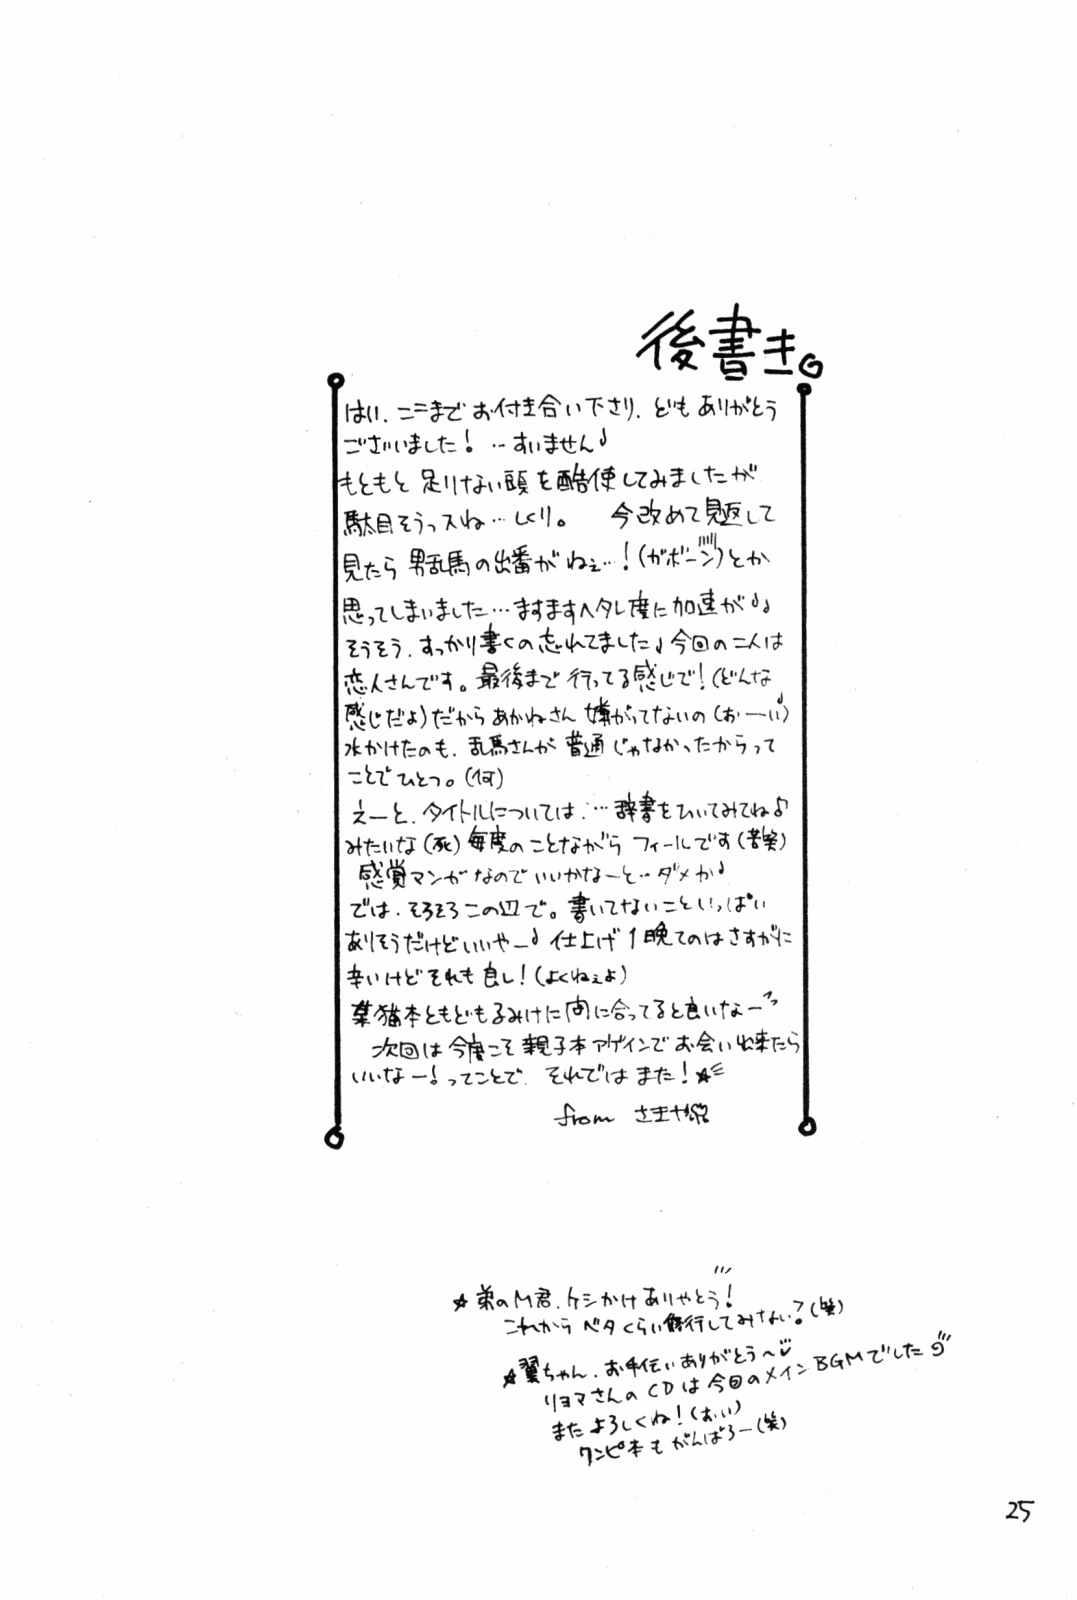 後書き。
はい、ここまでお付き合い下さり、どもありがとう
ございました！…すいません♪
もともと足りない頭を酷使してみましたが
駄目そうっスね…しくり。 今改めて見返して
見たら男乱馬の出番がねぇ…！(ガボーン)とか
思ってしまいました…ますますヘタレ度に加速が♪♪
そうそう、すっかり書くの忘れてました♪今回の二人は
恋人さんです。最後まで行ってる感じで！(どんな
感じだよ)だからあかねさん嫌がってないの(おーい)♪
水かけたのも、乱馬さんが普通じゃなかったからって
ことでひとつ。(何)
えーと、タイトルについては、…辞書をひいてみてね♪
みたいな(死)毎度のことながらフィールです(苦笑)
感覚マンガなのでいいかなーと…ダメか♪
では、そろそろこの辺で。書いてないこといっぱい
ありそうだけどいいやー♪仕上げ1晩てのはさすがに
辛いけどそれも良し！(よくねぇよ)
猫本ともどもるみけに間に合ってると良いなー
次回は今度こそ親子本アゲインでお会い出来たら
いいなー！ってことで、それではまた！★
from さまや
★弟のM君、ケシかけありやとう！
これからベタくらい修行してみない？(笑)
★翼ちゃん、お手伝いありがとう〜
リョマさんのCDは今回のメインBGMでした
またよろしくね！(おい)
ワンピ本もがんばろー(笑)
25